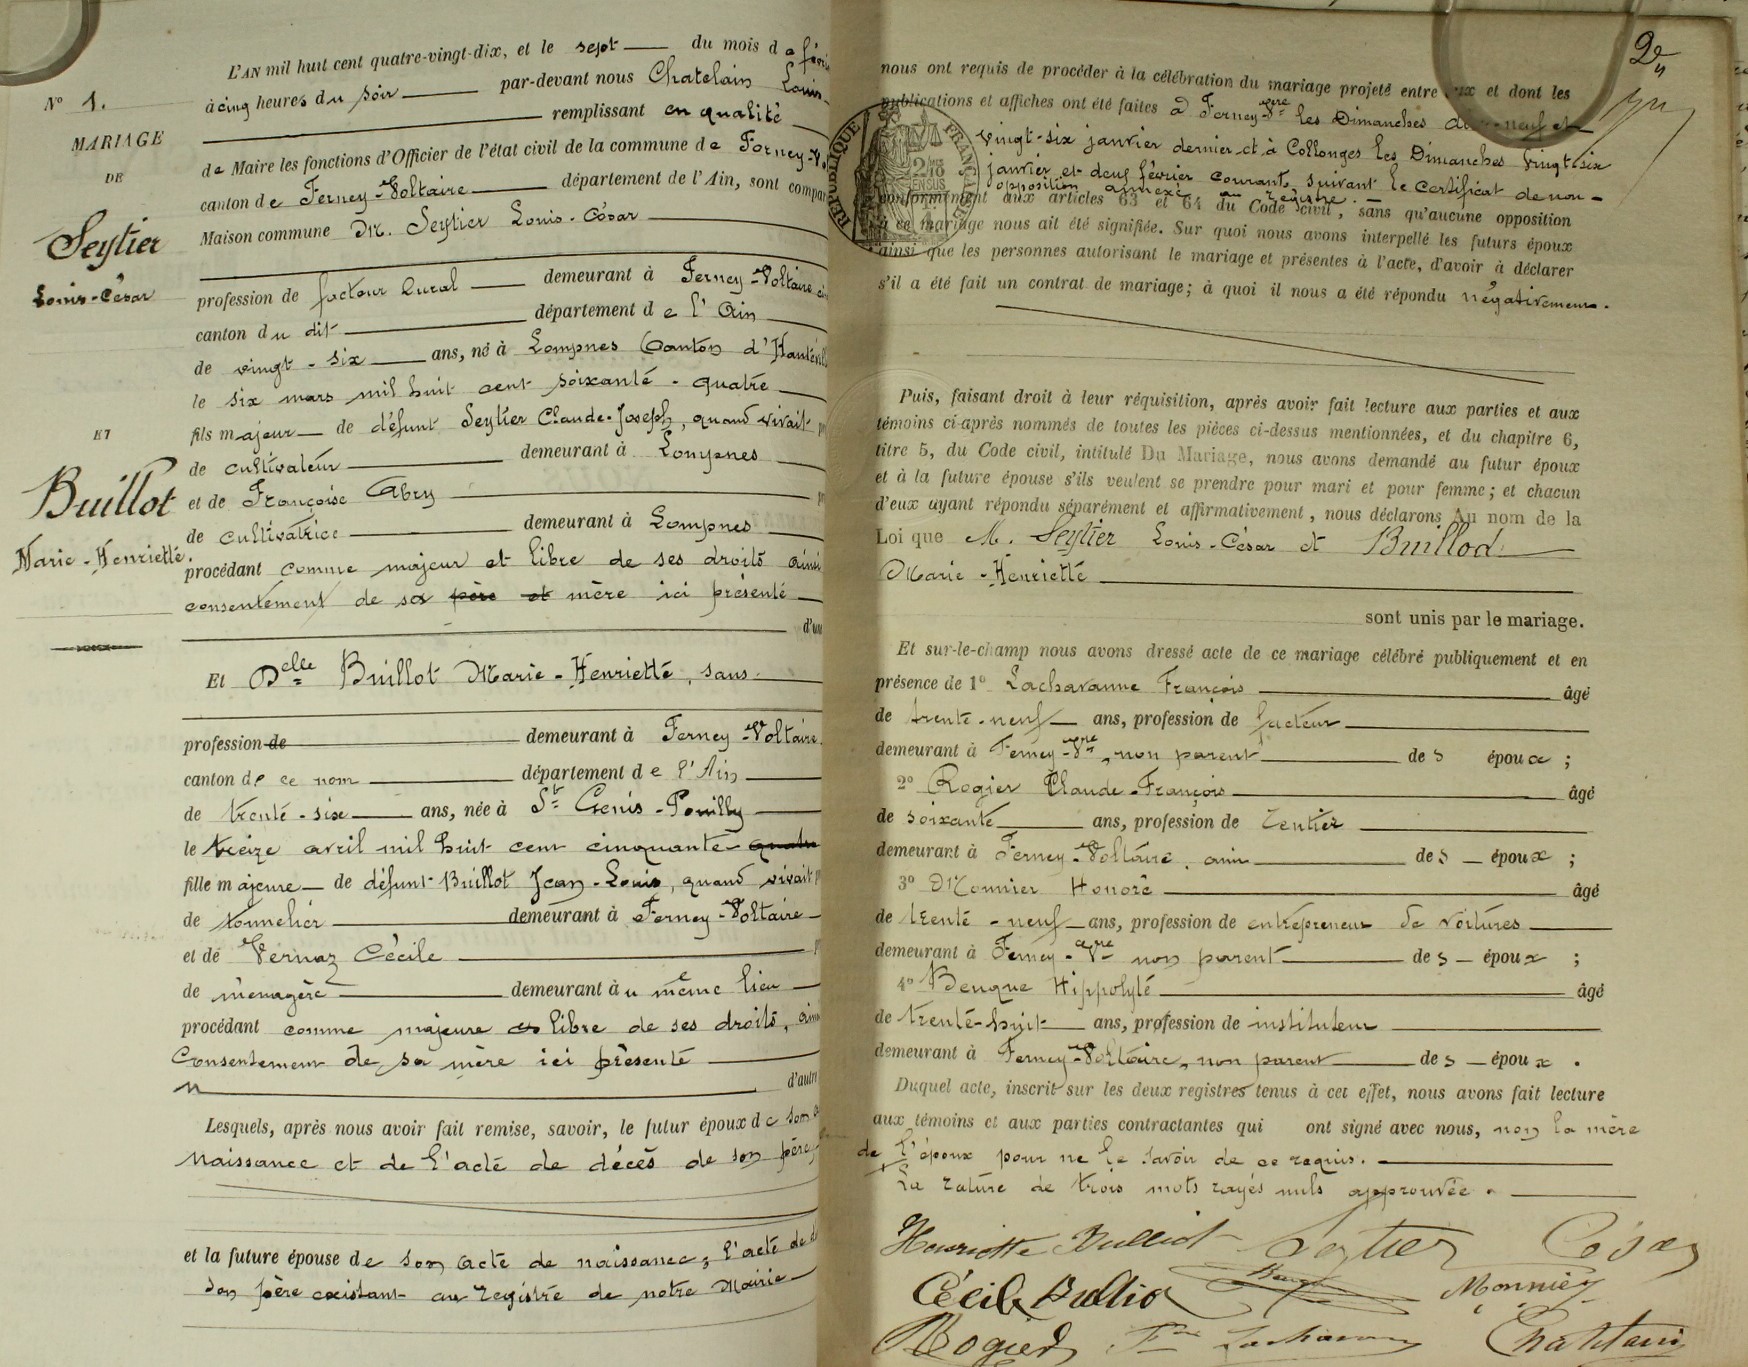 L'AN mil huit cent quatre-vingt-dix, et le sept du mois de
à cinq heures du soir par-devant nous Chatelain Louis
remplissant en qualité
de Maire les fonctions d'Officier de l'état civil de la commune de Ferney-V
canton de Ferney-Voltaire département de l'Ain, sont compar
Maison commune M. Seytier Louis-César
profession de facteur rural demeurant à Ferney-Voltaire
canton du dit département de l'Ain
de vingt-six ans, né à Lompnes (Canton d'Hautevill
le six mars mil huit cent soixante-quatre
fils majeur de défunt Seytier Claude-Joseph, quand vivait
de cultivateur demeurant à Lompnes
et de Françoise Abry
de cultivatrice demeurant à Lompnes
procédant comme majeur et libre de ses droits
consentement de sa père et mère ici présente
d'au
Et Delle Buillot Marie-Henriette, sans
profession de demeurant à Ferney-Voltaire
canton de ce nom département de l'Ain
de trente-six ans, née à St Genis-Pouilly
le treize avril mil huit cent cinquante-quatre
fille majeure de défunt Buillot Jean-Louis, quand vivait
de tonnelier demeurant à Ferney-Voltaire
et de Vernaz Cécile
de ménagère demeurant au même lieu
procédant comme majeure et libre de ses droits,
consentement de sa mère ici présente
d'autre
Lesquels, après nous avoir fait remise, savoir, le futur époux de son
naissance et de l'acte de décès de son père,
et la future épouse de son acte de naissance, l'acte de
son père existant au registre de notre Mairie
N° 1.
MARIAGE
DE
Seytier
Louis-César
ET
Buillot
Marie-Henriette.
2e
nous ont requis de procéder à la célébration du mariage projeté entre eux et dont les
publications et affiches ont été faites à Ferney-Vre les Dimanches dix-neuf et
vingt-six janvier dernier et à Collonges les Dimanches vingt-six
janvier et deux février courant, suivant le certificat de non-
opposition annexé au registre.
conformément aux articles 63 et 64 du Code civil, sans qu'aucune opposition
à ce mariage nous ait été signifiée. Sur quoi nous avons interpellé les futurs époux
ainsi que les personnes autorisant le mariage et présentes à l'acte, d'avoir à déclarer
s'il a été fait un contrat de mariage; à quoi il nous a été répondu négativement.
RÉPUBLIQUE FRANÇAISE
Puis, faisant droit à leur réquisition, après avoir fait lecture aux parties et aux
témoins ci-après nommés de toutes les pièces ci-dessus mentionnées, et du chapitre 6,
titre 5, du Code civil, intitulé Du Mariage, nous avons demandé au futur époux
et à la future épouse s'ils veulent se prendre pour mari et pour femme; et chacun
d'eux ayant répondu séparément et affirmativement, nous déclarons Au nom de la
Loi que M. Seytier Louis-César et Buillod
Marie-Henriette
sont unis par le mariage.
Et sur-le-champ nous avons dressé acte de ce mariage célébré publiquement et en
présence de 1° Lacharanne François âgé
de trente-neuf ans, profession de facteur
demeurant à Ferney-Vre, non parent des époux;
2° Rogier Claude-François âgé
de soixante ans, profession de rentier
demeurant à Ferney-Voltaire, ami des époux;
3° Monnier Honoré âgé
de trente-neuf ans, profession de entrepreneur de voitures
demeurant à Ferney-Vre non parent des époux;
4° Benque Hippolyte âgé
de trente-huit ans, profession de instituteur
demeurant à Ferney-Voltaire, non parent des époux.
Duquel acte, inscrit sur les deux registres tenus à cet effet, nous avons fait lecture
aux témoins et aux parties contractantes qui ont signé avec nous, non la mère
de l'époux pour ne le savoir de ce requis.
La rature de trois mots rayés nuls approuvée.
Henriette Bulliot Seytier César
Cécile Bullio Monnier
Rogier Chatelain